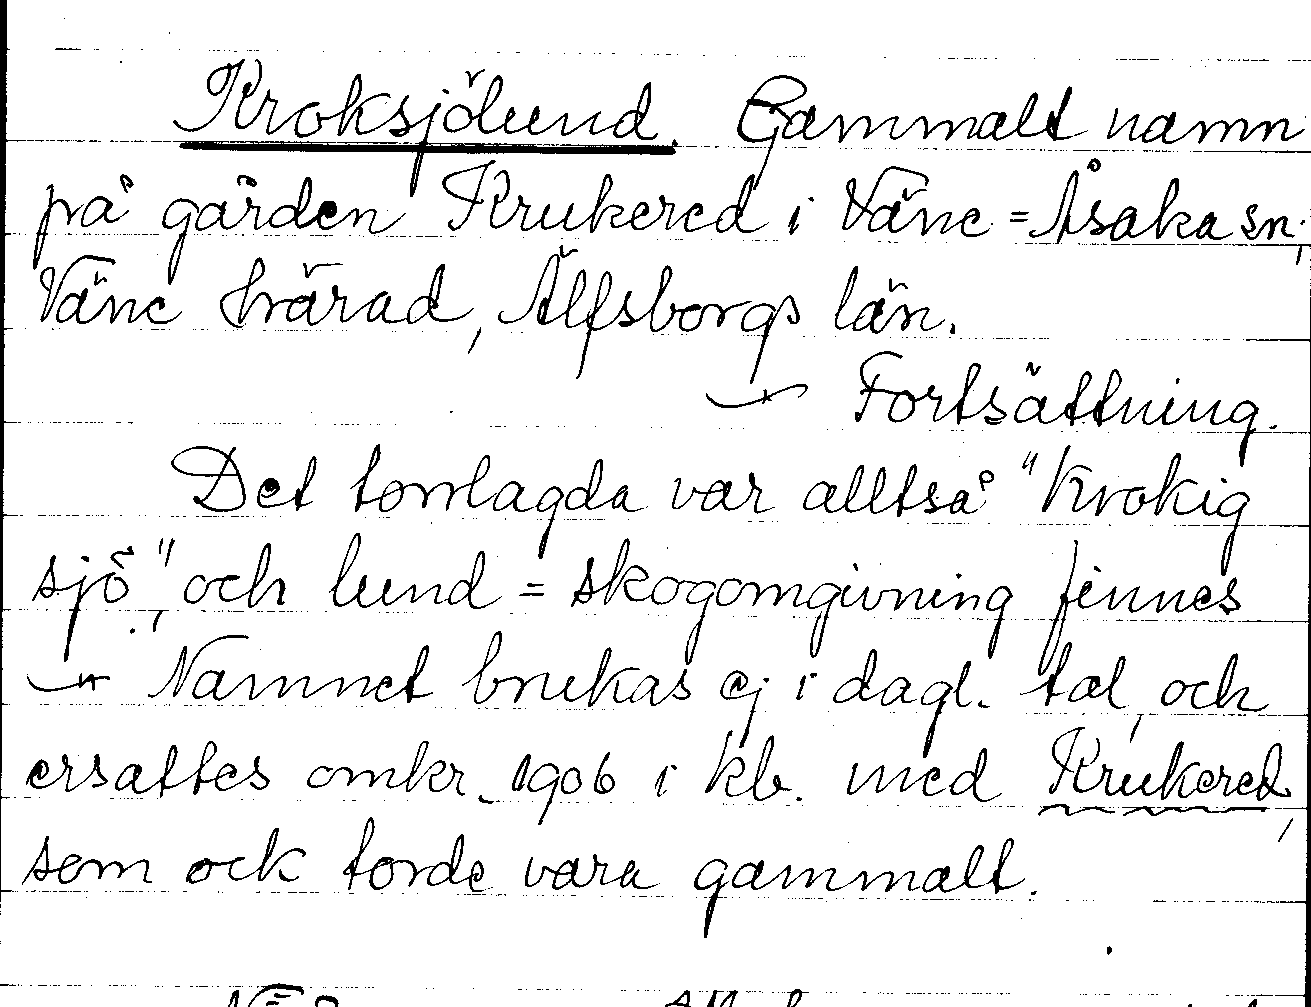 Kroksjölund. Gammalt namn
på gården Krukered i Väne=Åsaka sn,
Väne härad, Älfsborgs län.
Fortsättning.
Det torrlagda var alltså "Krokig
sjö", och lund = skogomgivning finnes
Namnet brukas ej i dagl. tal, och
ersattes omkr. 1906 i kb. med Krukered,
som ock torde vara gammalt.